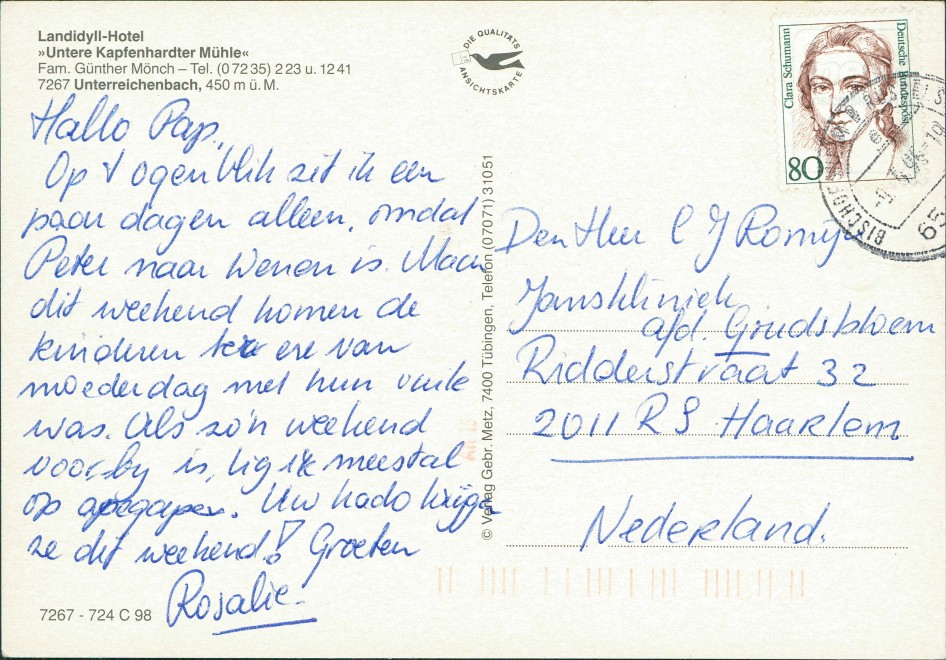 Landidyll-Hotel
»Untere Kapfenhardter Mühle«
Fam. Günther Mönch – Tel. (0 72 35) 2 23 u. 12 41
7267 Unterreichenbach, 450 m ü. M.
DIE QUALITÄTS
ANSICHTSKARTE
Clara Schumann
Deutsche Bundespost
80
BISCHOF
Hallo Pap,
Op 't ogenblik zit ik een
paar dagen alleen, omdat
Peter naar Wenen is. Maar
dit weekend komen de
kinderen ere van
moederdag met hun vuile
was. Als zo'n weekend
voorby is, lig ik meestal
op apegapen. Uw kado krijgen
ze dit weekend! Groeten
Rosalie.
7267 - 724 C 98
© Verlag Gebr. Metz, 7400 Tübingen, Telefon (07071) 31051
Den Heer C J Romyn
Janskliniek
afd. Goudsbloem
Ridderstraat 32
2011 RS Haarlem
Nederland.